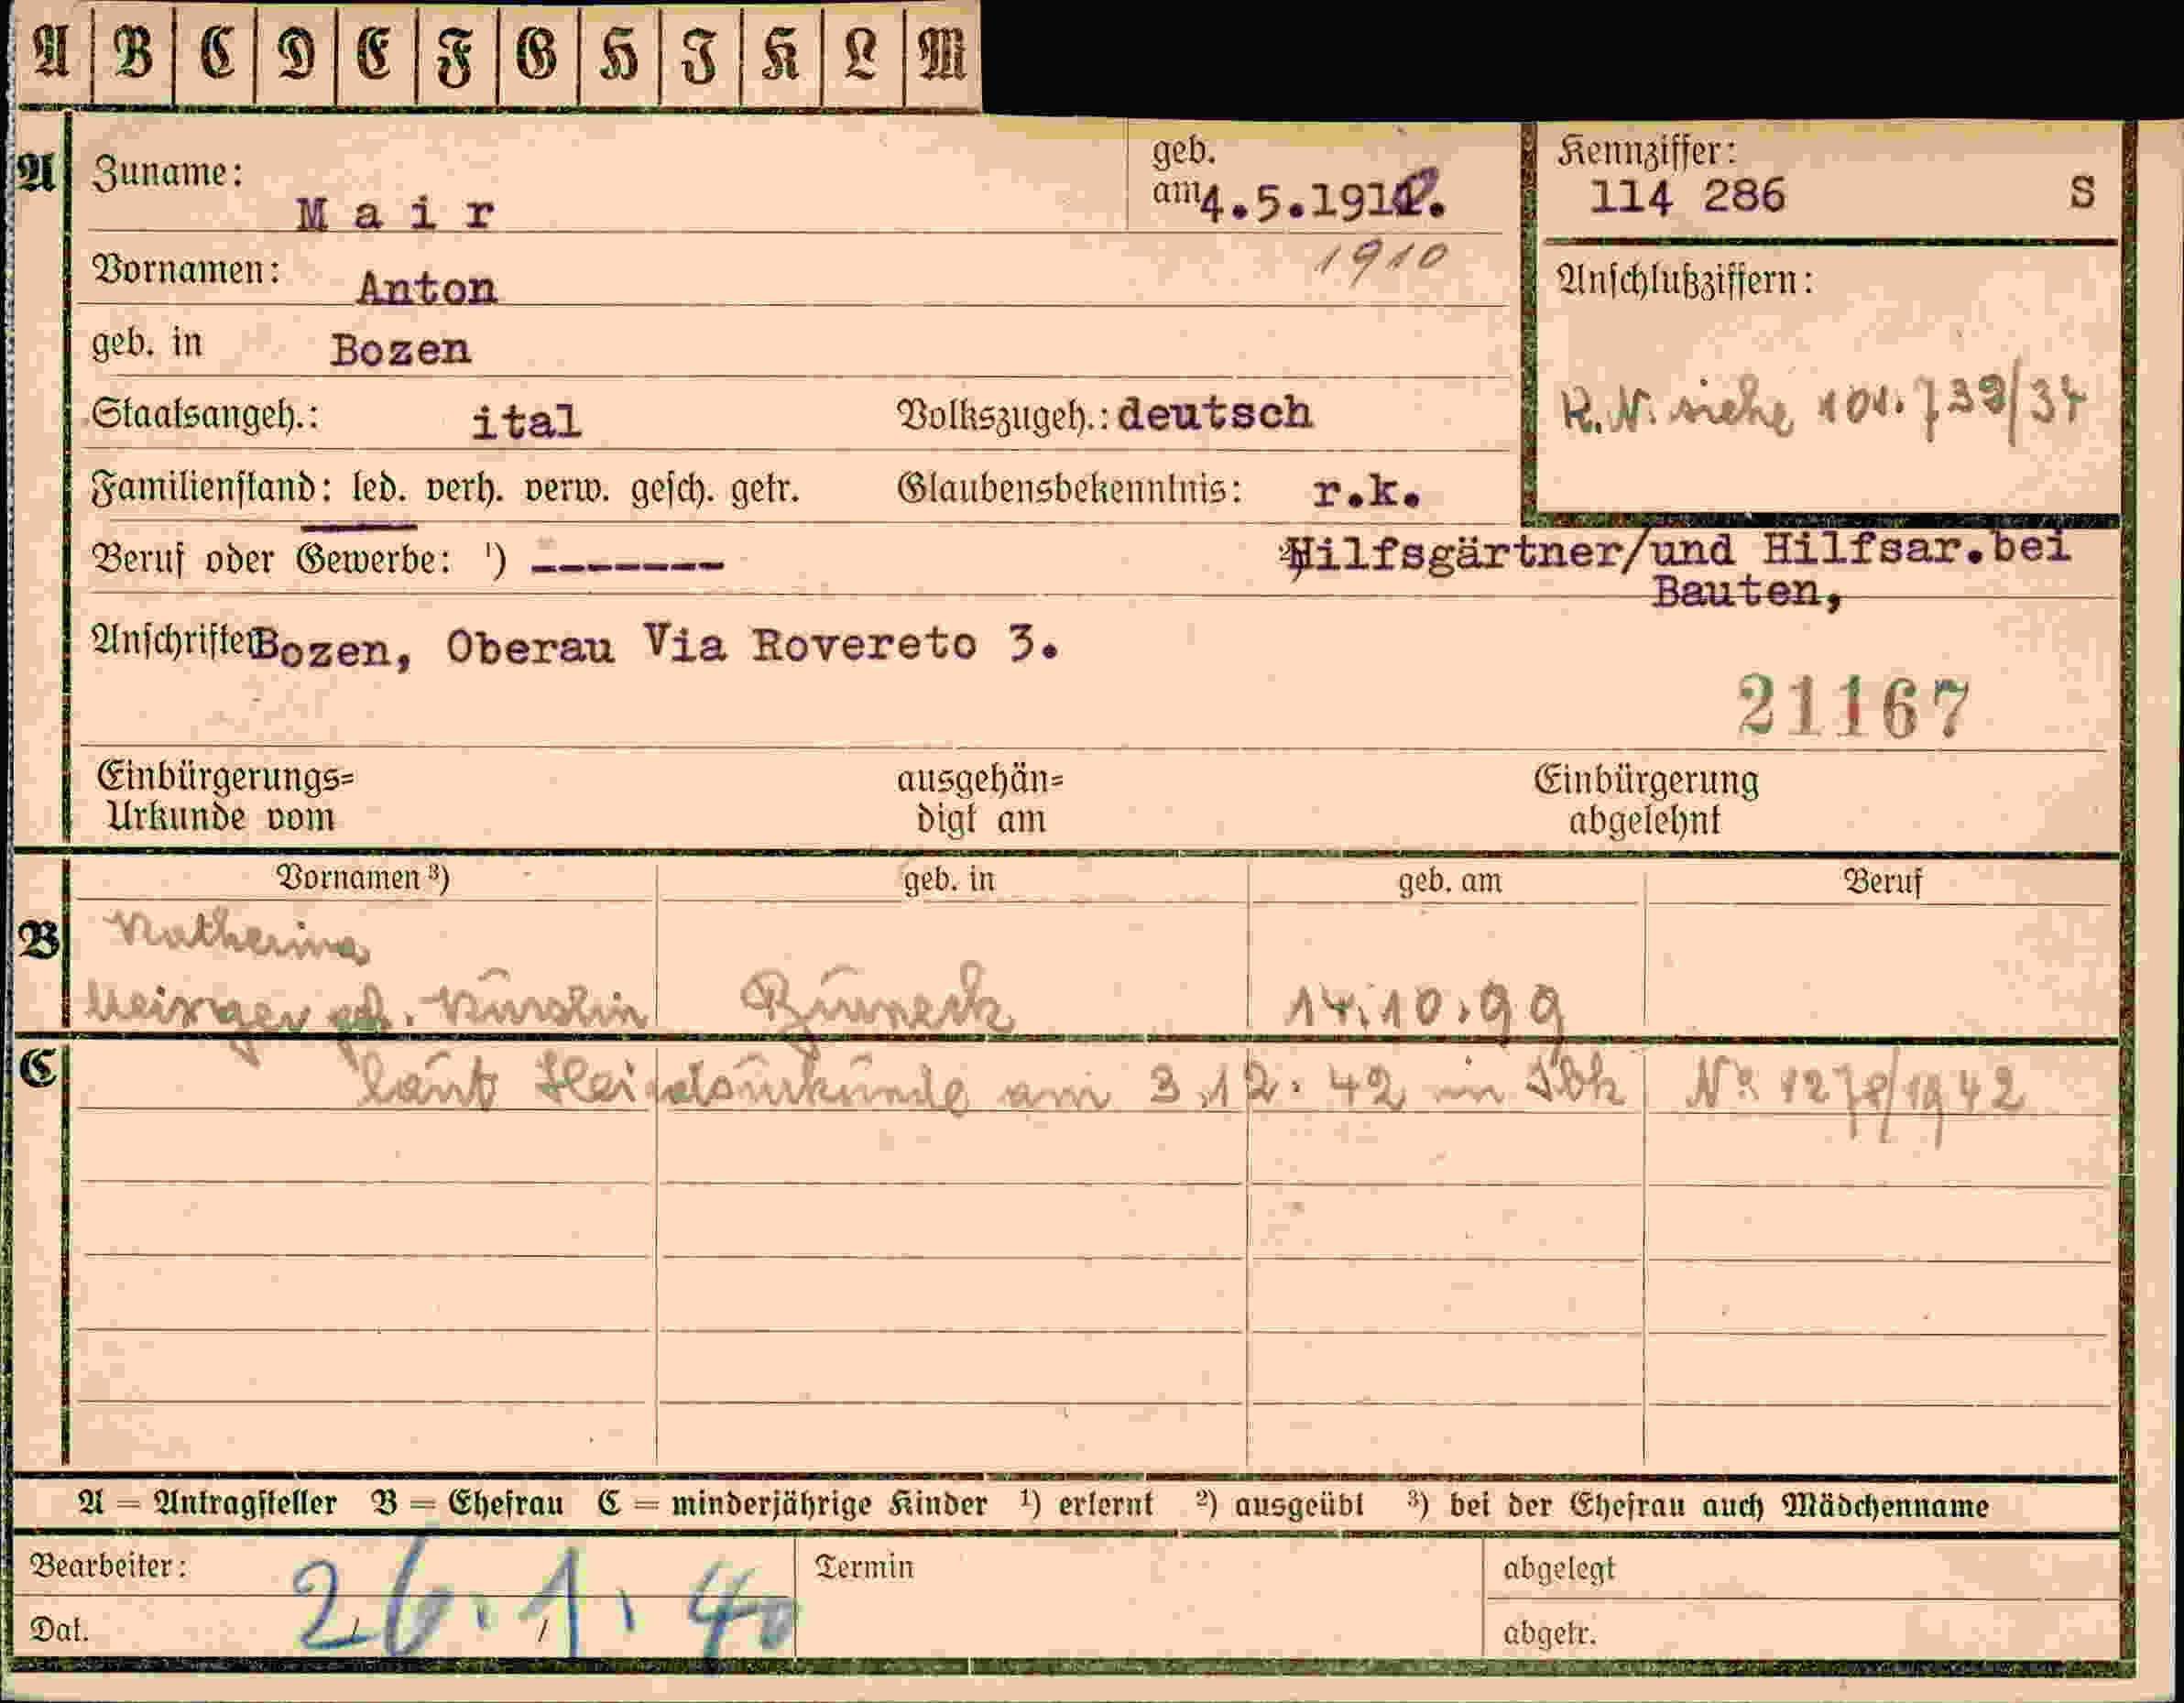 A B C D E F G H I K L M
A Zuname: Mair
geb. am 4.5.1910.
1910
Kennziffer: 114 286 S
Vornamen: Anton
Anschlußziffern:
geb. in Bozen
R.N. siehe 101.739/37
Staatsangeh.: ital Volkszugeh.: deutsch
Familienstand: led. verh. verw. gesch. getr. Glaubensbekenntnis: r.k.
Beruf oder Gewerbe: ¹) ------- ²) Hilfsgärtner/und Hilfsar.bei
Bauten,
Anschriften Bozen, Oberau Via Rovereto 3.
21167
Einbürgerungs= ausgehän= Einbürgerung
Urkunde vom digt am abgelehnt
Vornamen ³) geb. in geb. am Beruf
B Katherina
geb. 14.10.99
C laut Heiratsurkunde am 3.12.42 in Ibk No 1278/1942
A = Antragsteller B = Ehefrau C = minderjährige Kinder ¹) erlernt ²) ausgeübt ³) bei der Ehefrau auch Mädchenname
Bearbeiter: Termin abgelegt
Dat. 26.1.40 abgetr.